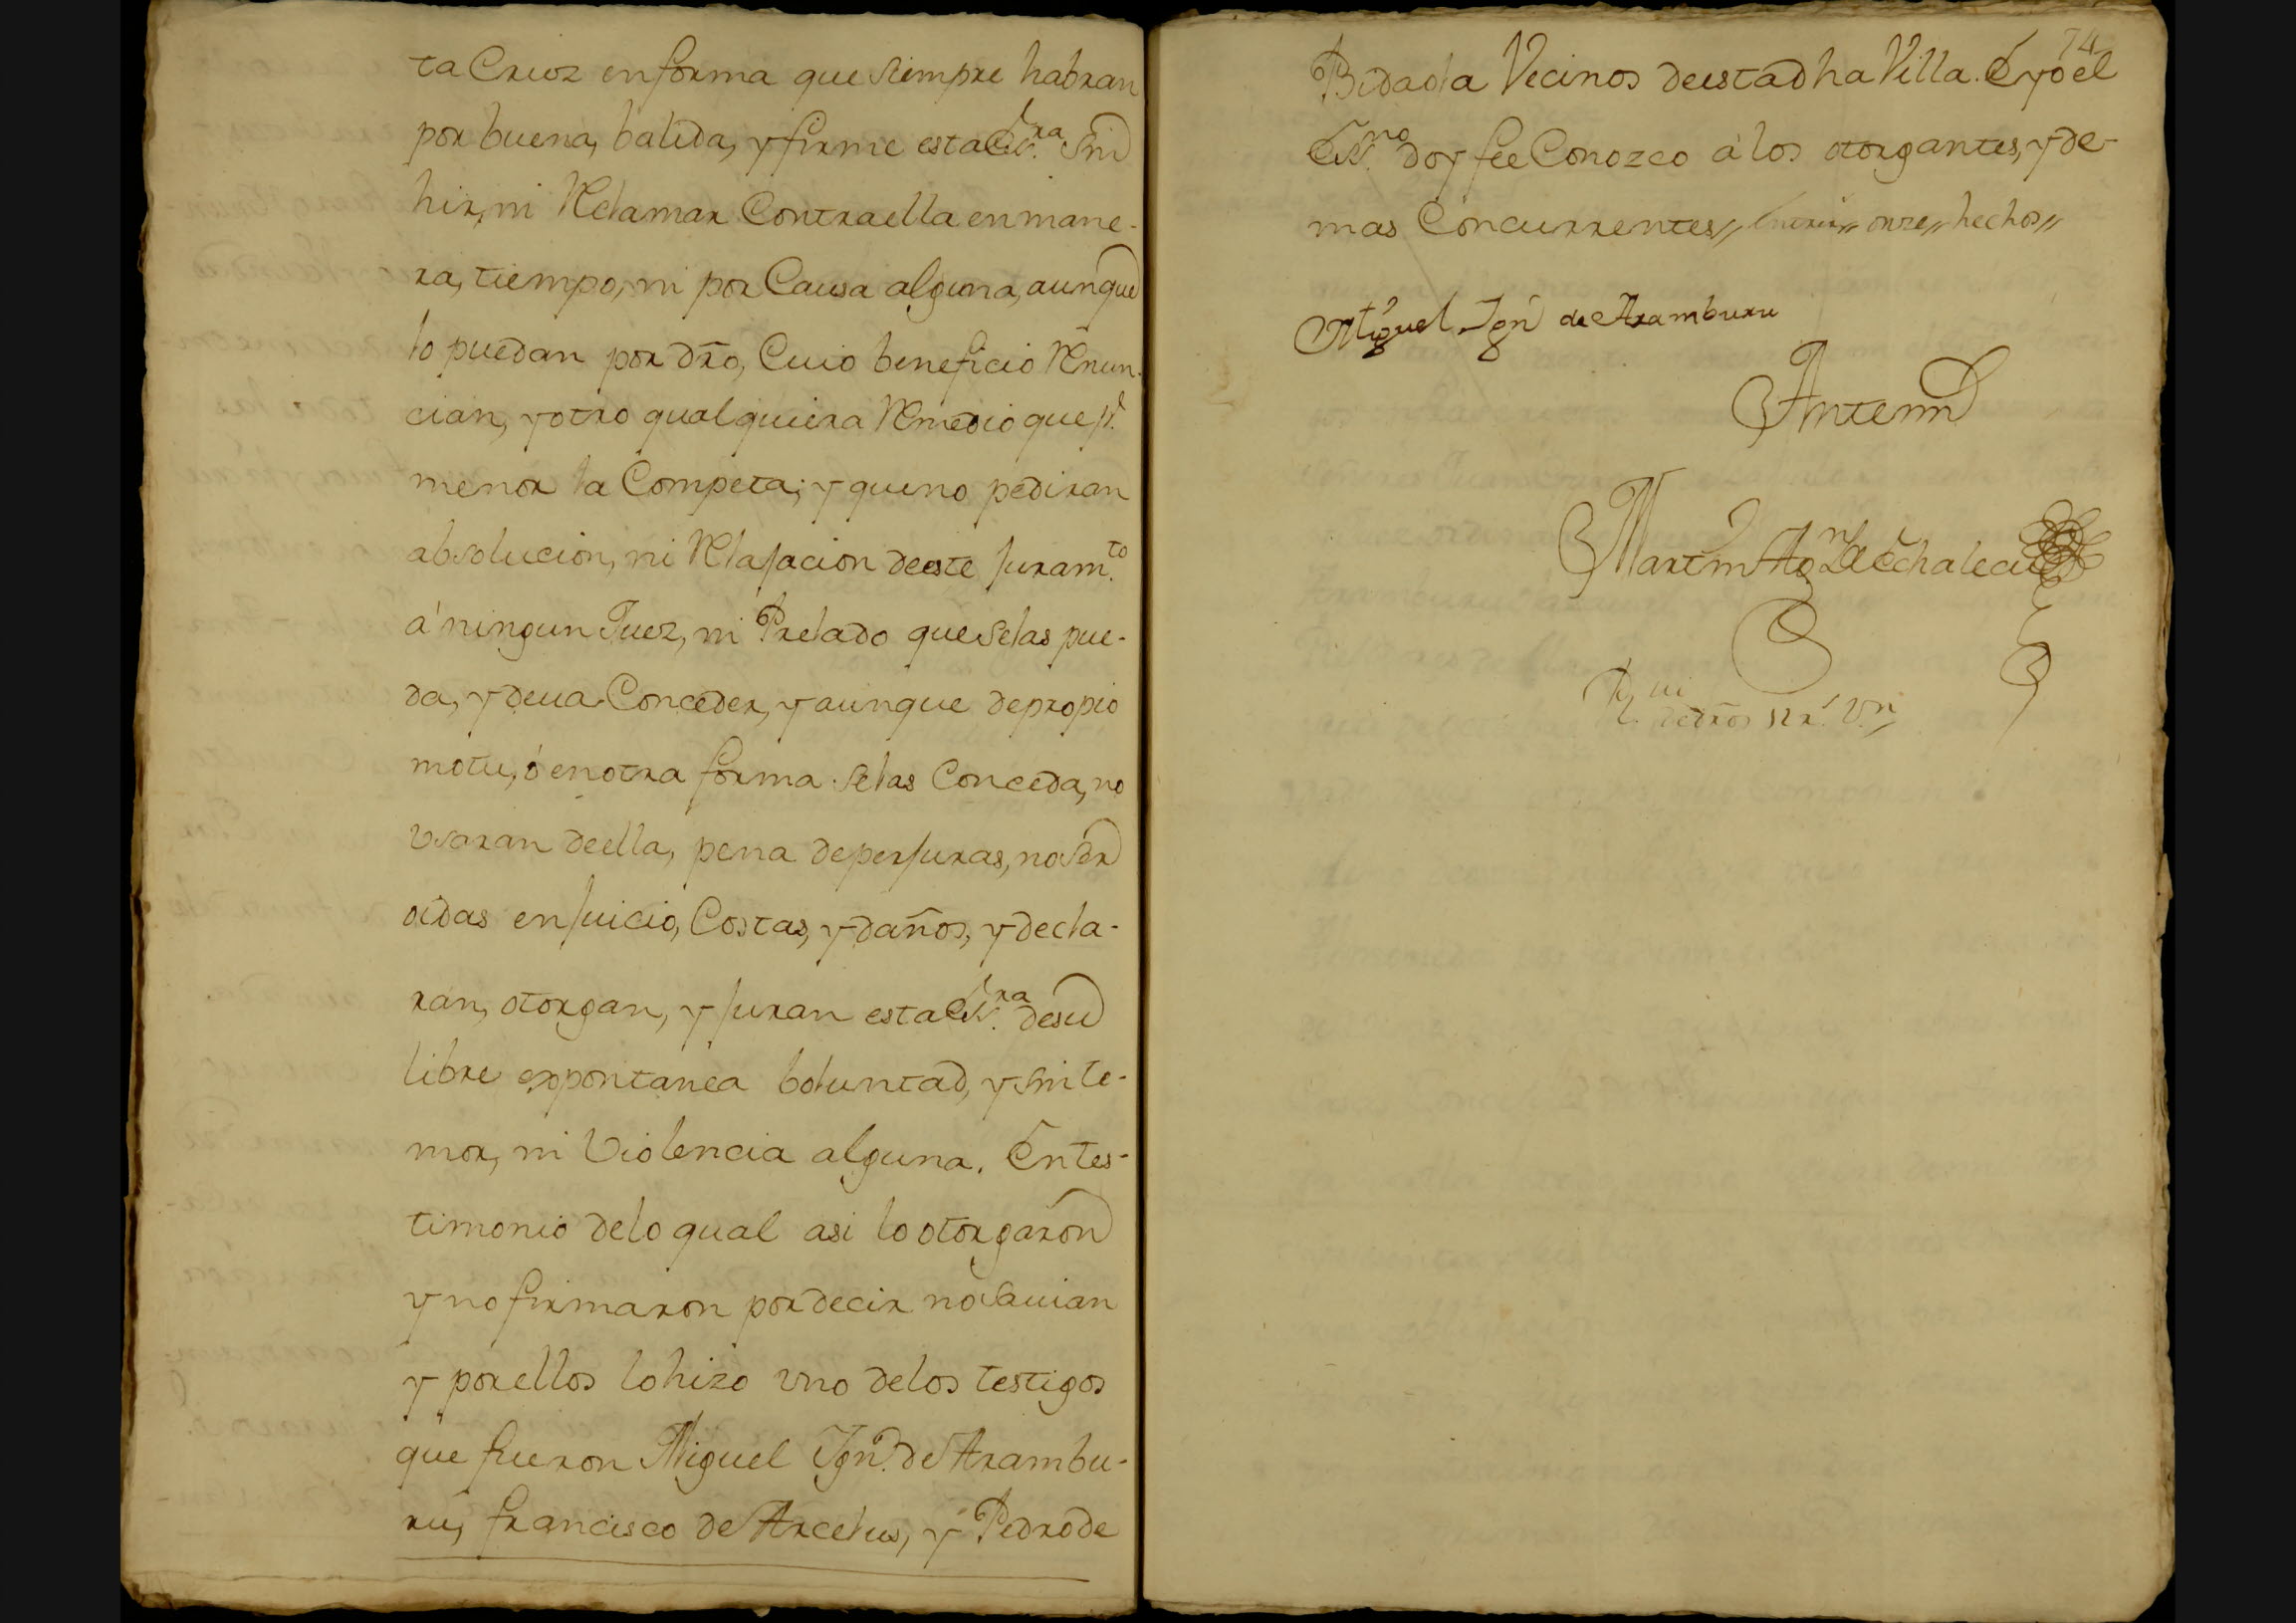 ta Cruz en forma que siempre habran
por buena, balida, y firme esta Ess.ra sin
hir, ni Reclamar Contra ella en mane-
ra, tiempo, ni por Causa alguna, aunque
lo puedan por dro, Cuio beneficio Renun-
cian, y otro qualquiera Remedio que p.r
menor la Competa; y que no pediran
absolucion, ni Relajacion de este juram.to
á ningun Juez, ni Prelado que se las pue-
da, y deva Conceder, y aunque de propio
motu, ó en otra forma se las Conceda, no
usaran de ella, pena de perjuras, no ser
oidas en juicio, Costas, y daños, y decla-
ran, otorgan, y juran esta Ess.ra de su
libre expontanea boluntad, y sin te-
mor, ni Violencia alguna. En tes-
timonio de lo qual asi lo otorgaron
y no firmaron por decir no savian
y por ellos lo hizo uno de los testigos
que fueron Miguel Ign.o de Arambu-
ru, francisco de Arcelus, y Pedro de
74
Bidaola Vecinos de esta dha Villa. E yo el
Ess.no doy fee Conozco á los otorgantes, y de-
mas Concurrentes // Entrer.s // onze // hechos //
Miguel Ign.o de Aramburu
Antemi
Martin Ag.n de Echalecu
dros